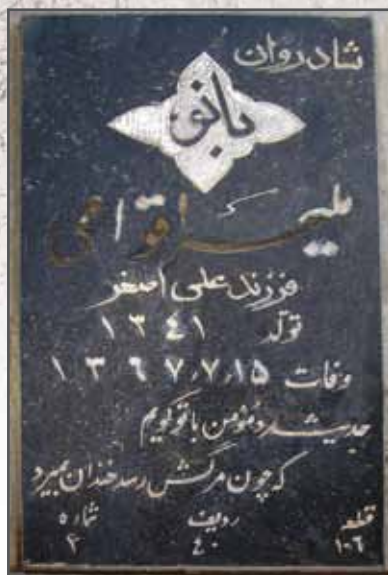 شادروان
بانو
فرزند علی اصغر
تولد ۱۳۴۱
وفات ۱۳۶۷٫۷٫۱۵
حدیث مرد مؤمن با تو گویم
که چون مرگش رسد خندان بمیرد
قطعه ردیف شماره
۱۰۶ ۴۰ ۲